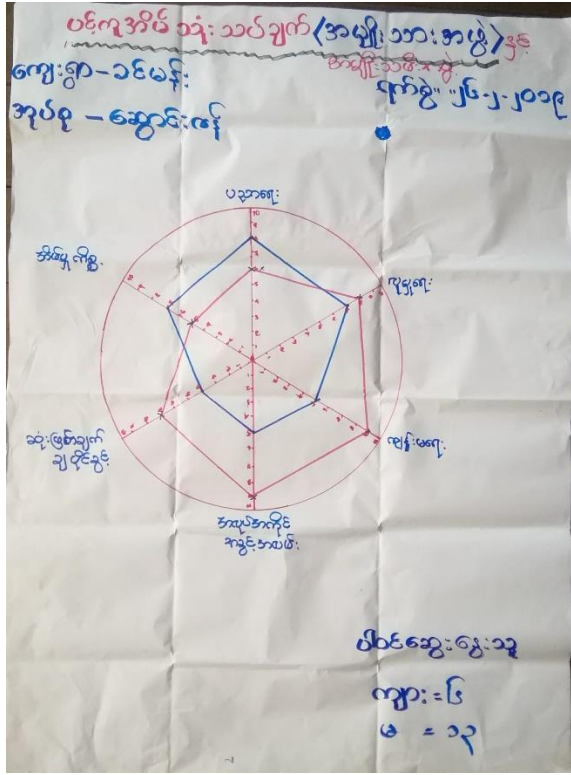 ပင့်ကူအိမ် သုံးသပ်ချက် (အမျိုးသားအဖွဲ့) နှင့်
အမျိုးသမီးအဖွဲ့
ကျေးရွာ - ခင်မန်း
ရက်စွဲ - ၂၆-၂-၂၀၁၉
အုပ်စု - ဆောင်းဇန်
ပညာရေး
လူမှုရေး
ကျန်းမာရေး
အလုပ်အကိုင်
အခွင့်အလမ်း
ဆုံးဖြတ်ချက်
ချပိုင်ခွင့်
အိမ်မှုကိစ္စ
ပါဝင်ဆွေးနွေးသူ
ကျား = ၆
မ = ၁၃